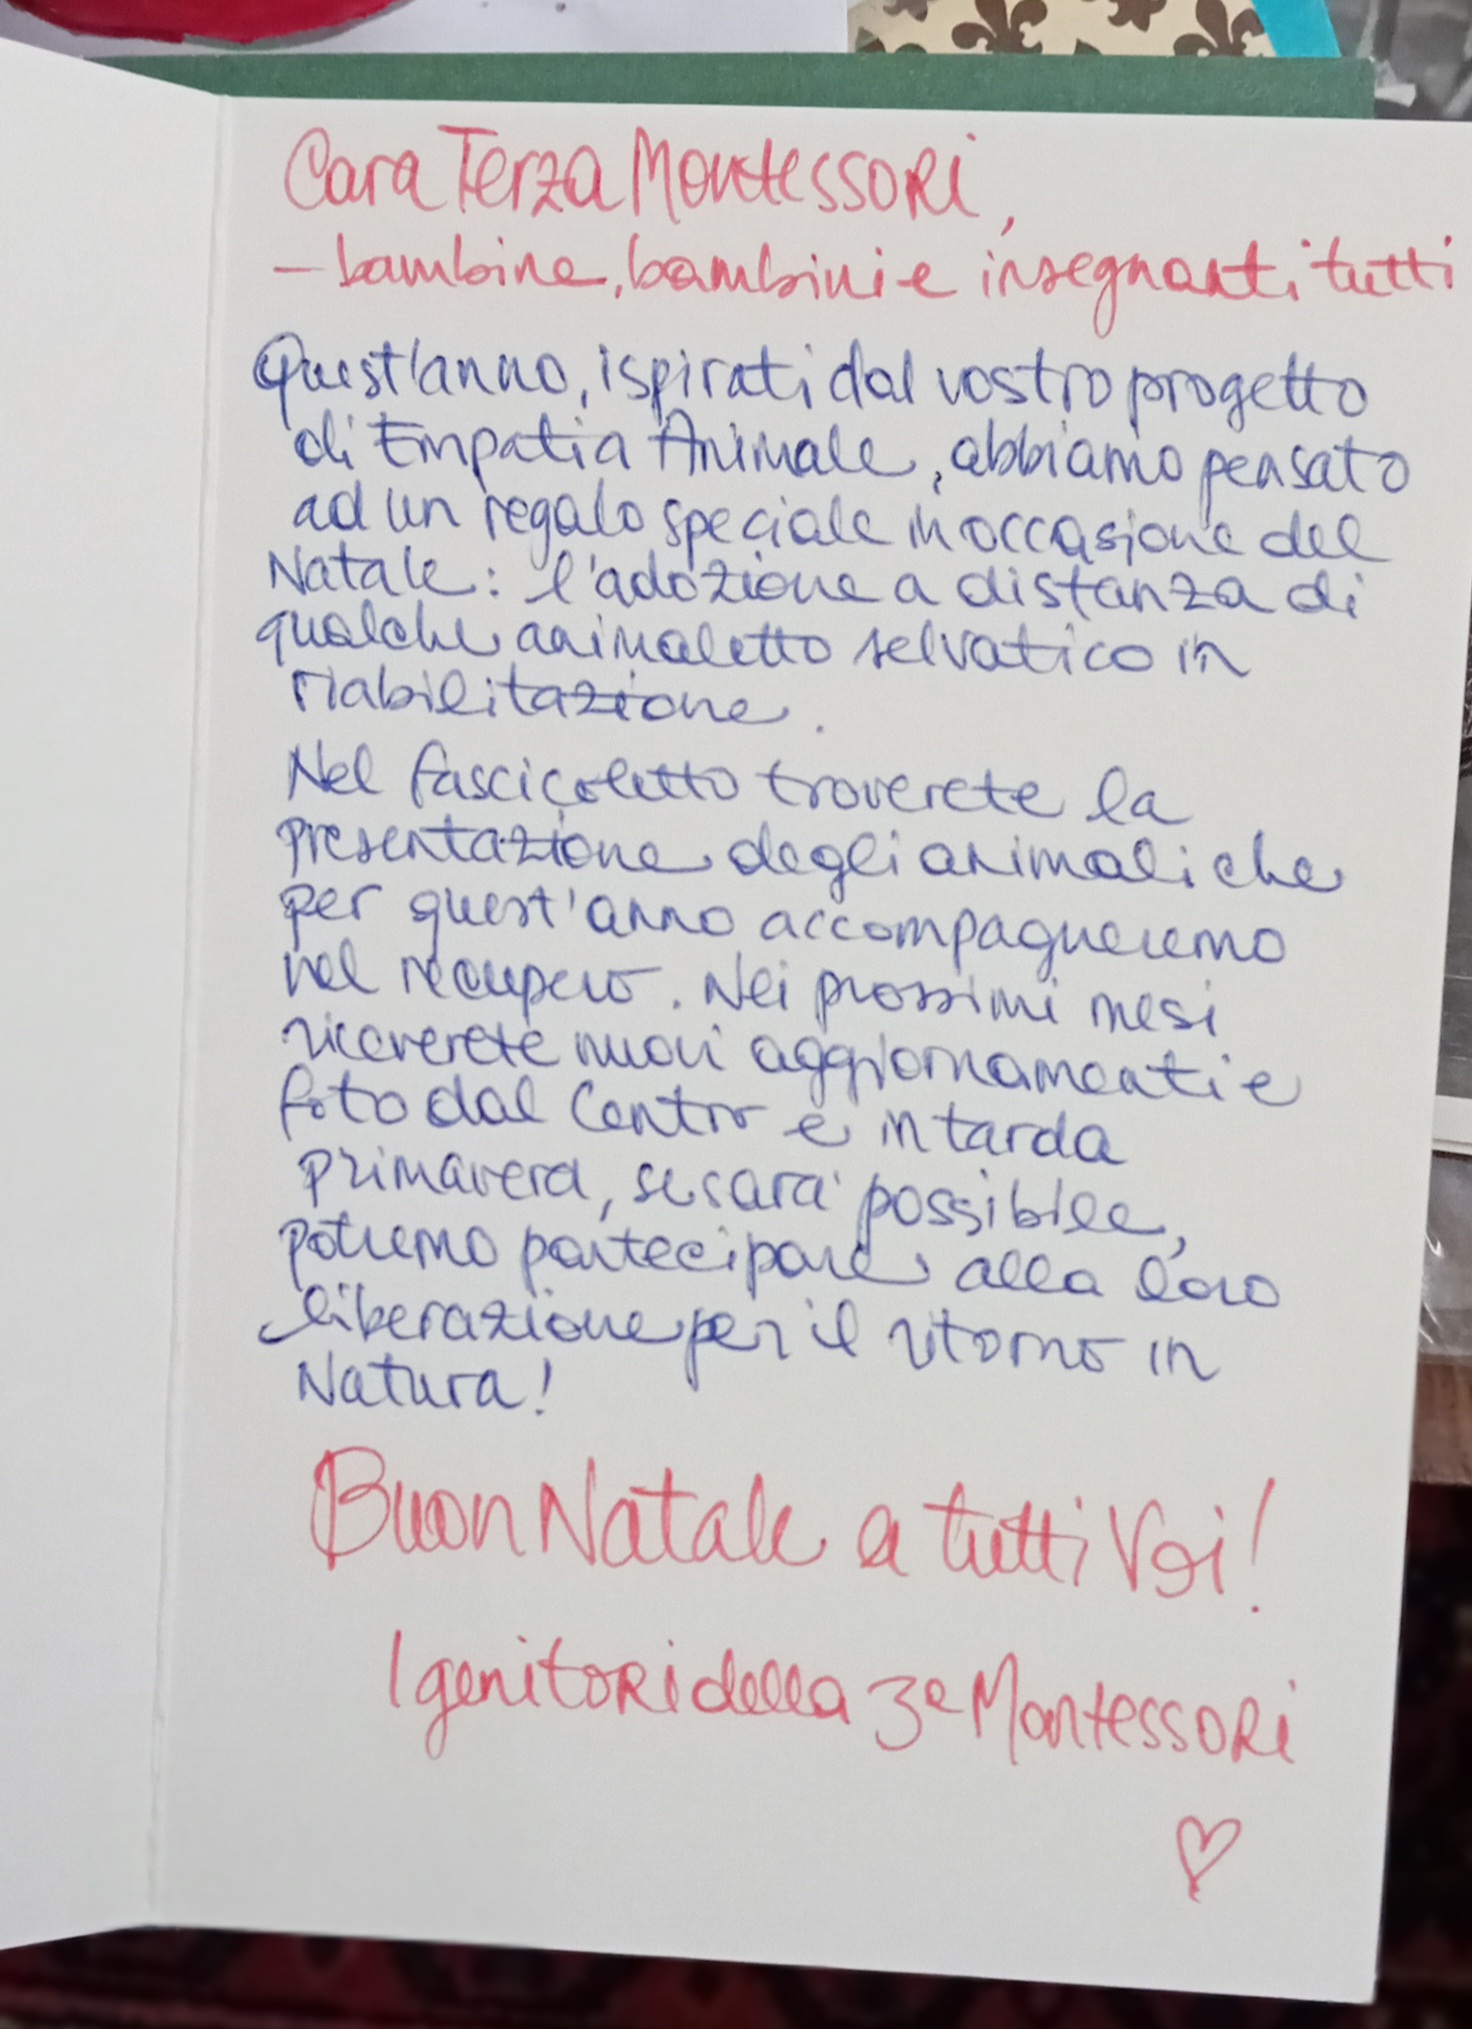 Cara Terza Montessori,
– bambine, bambini e insegnanti tutti
Quest'anno, ispirati dal vostro progetto
di Empatia Animale, abbiamo pensato
ad un regalo speciale in occasione del
Natale: l'adozione a distanza di
qualche animaletto selvatico in
riabilitazione.
Nel fascicoletto troverete la
presentazione degli animali che
per quest'anno accompagneremo
nel recupero. Nei prossimi mesi
riceverete nuovi aggiornamenti e
foto dal Centro e in tarda
primavera, se sara' possibile,
potremo partecipare alla loro
liberazione per il ritorno in
Natura!
Buon Natale a tutti Voi!
I genitori della 3a Montessori